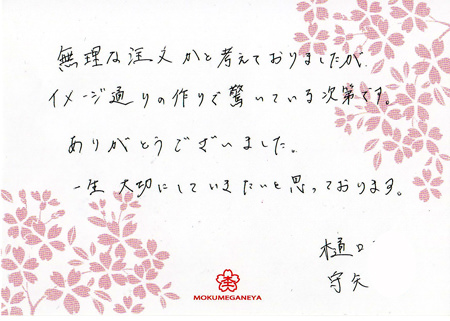 無理な注文かと考えておりましたが、
イメージ通りの作りで驚いている次第です。
ありがとうございました。
一生大切にしていきたいと思っております。
樋口
守矢
MOKUMEGANEYA